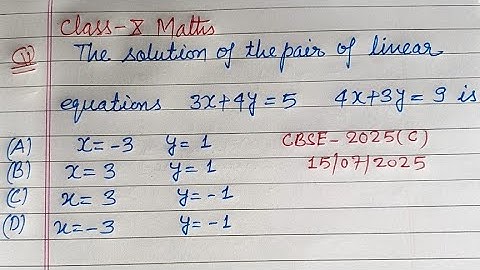 Class-X Maths
Q1) The solution of the pair of linear
equations 3x+4y=5 4x+3y=9 is
(A) x=-3 y=1 CBSE-2025(C)
(B) x=3 y=1 15/07/2025
(C) x=3 y=-1
(D) x=-3 y=-1